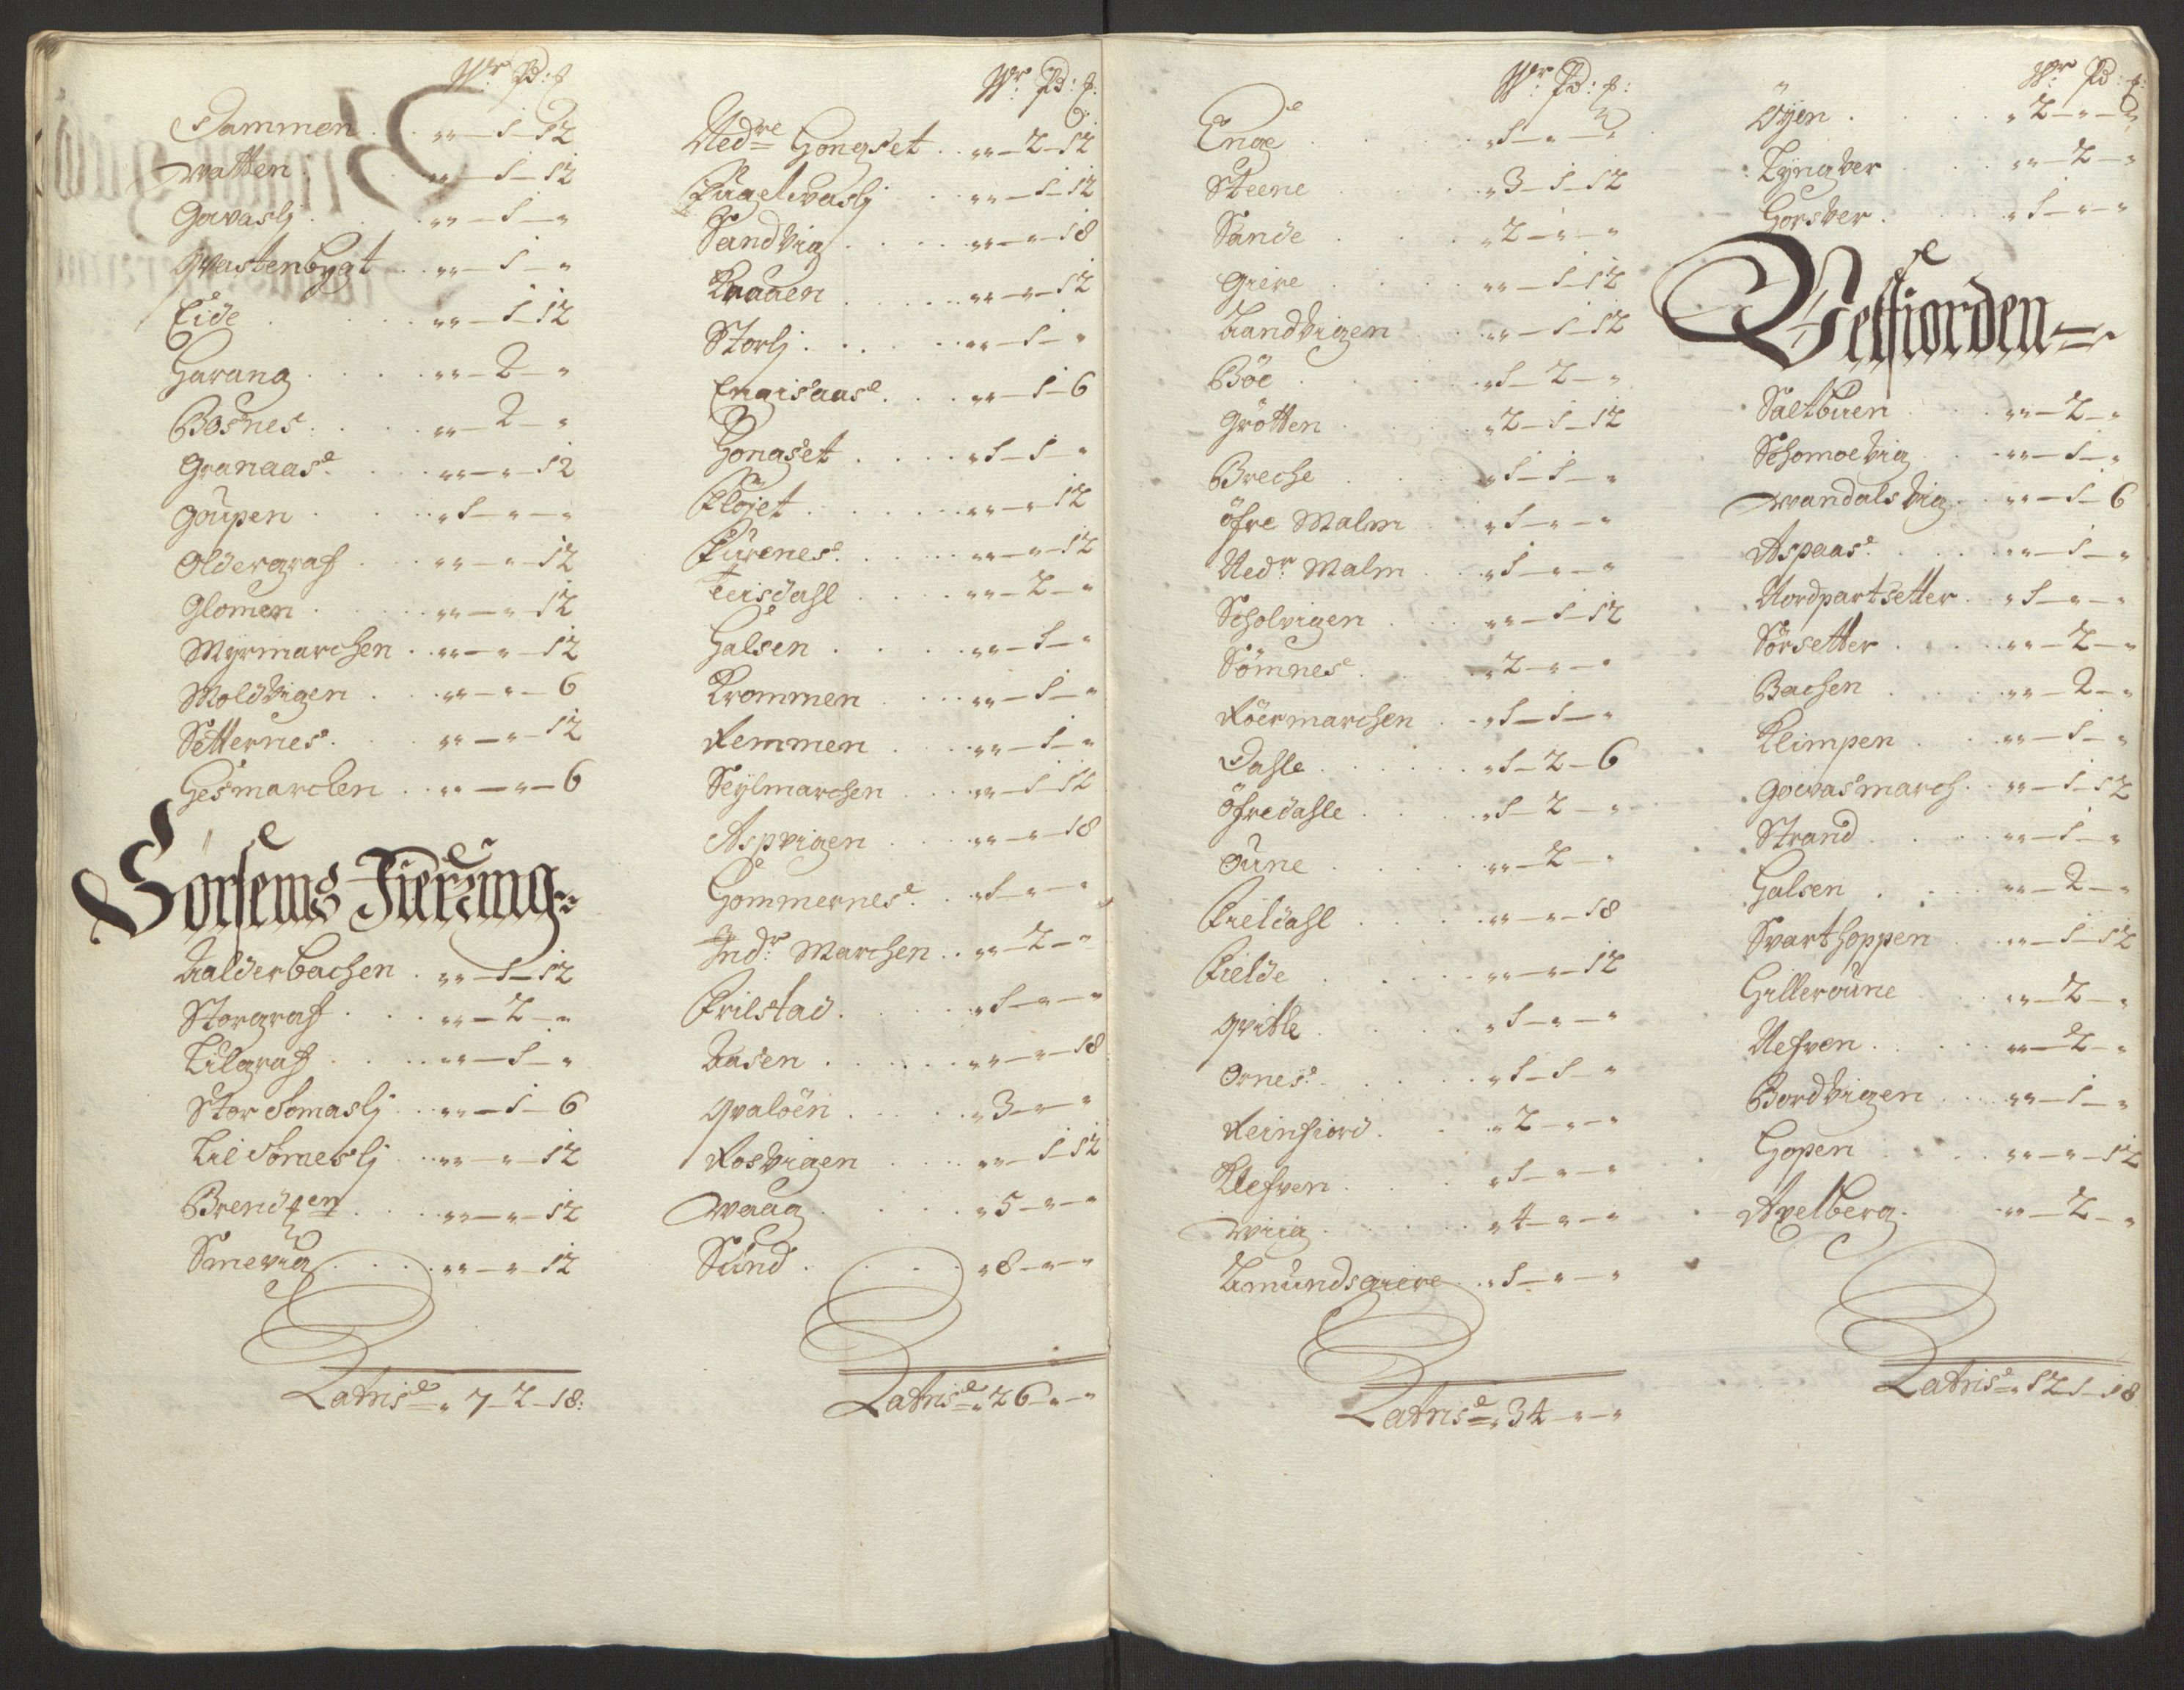 Wr: Pd: f
Dammen . . „„ – 1 – 12
Watten . . „„ – 1 – 12
Gavaslj . . „„ – 1 – „
Qvastenbygt . . „„ – 1 – „
Eide . . „„ – 1 – 12
Harang . . „„ – 2 – „
Bosnes . . „„ – 2 – „
Granaase . . „„ – „ – 12
Goupen . . „ 1 – „ – „
Oldergraf . . „„ – „ – 12
Glomen . . „„ – „ – 12
Myrmarchen . . „„ – „ – 12
Moldvigen . . „„ – „ – 6
Setternes . . „„ – „ – 12
Hesmarchen . . „„ – „ – 6
Sörsems Fierung
Aalderbachen . „„ – 1 – 12
Storgraf . . „„ – 2 – „
Lilgraf . . „„ – 1 – „
Stor Somaslj . . „„ – 1 – 6
Lil Someslj . . „„ – „ – 12
Brendgen . . „„ – „ – 12
Smevig . . „„ – „ – 12
Latrise „ 7 – 2 – 18:
Wr: Pd: f:
Nedre Hongset . . „„ – 2 – 12
Fugelvaslj . . „„ – 1 – 12
Sandvig . . „„ – „ – 18
Kraaen . . „„ – „ – 12
Storlj . . „„ – 1 – „
Engisaase . . „„ – 1 – 6
Hongset . . „ 1 – 1 – „
Fløjet . . „„ – „ – 12
Furenese . . „„ – „ – 12
Teisdahl . . „„ – 2 – „
Halsen . . „„ – 1 – „
Krommen . . „„ – 1 – „
Remmen . . „„ – 1 – „
Seylmarchen . . „„ – 1 – 12
Aspvigen . . „„ – „ – 18
Hommernese . . „ 1 – „ – „
Indr: Marchen . . „„ – 2 – „
Frilstad . . „ 1 – „ – „
Aasen . . „„ – „ – 18
Qvalöen . . „ 3 – „ – „
Rosvigen . . „„ – 1 – 12
Waag . . „ 5 – „ – „
Sund . . „ 8 – „ – „
Latrise „ 26 – „ – „
Wr: Pd: f:
Enge . . „ 1 – „ – „
Steene . . „ 3 – 1 – 12
Sande . . „ 2 – „ – „
Giere . . „„ – 1 – 12
Aandvigen . . „„ – 1 – 12
Böe . . „ 1 – 2 – „
Grötten . . „ 2 – 1 – 12
Breche . . „ 1 – 1 – „
Öfre Malm . . „ 1 – „ – „
Nedr: Malm . . „ 1 – „ – „
Scholvigen . . „„ – 1 – 12
Sömnese . . „ 2 – „ – „
Röermarchen . . „ 1 – 1 – „
Dahle . . „ 1 – 2 – 6
Öfredahle . . „ 1 – 2 – „
Oune . . „„ – 2 – „
Fieldahl . . „„ – „ – 18
Fielde . . „„ – „ – 12
Qvitle . . „ 1 – „ – „
Ornes . . „ 1 – 1 – „
Reinfiord . . „ 2 – „ – „
Klefven . . „ 1 – „ – „
Wiig . . „ 4 – „ – „
Amundsgiere . . „ 1 – „ – „
Latrise „ 34 – „ – „
Wr: Pd: f:
Öyen . . „ 2 – „ – „
Lyngver . . „„ – 2 – „
Horsver . . „ 1 – „ – „
Velfiorden
Saltbuen . . „„ – 2 – „
Schomoevig . . „„ – 1 – „
Wandalsvig . . „„ – 1 – 6
Aspaase . . „„ – 1 – „
Nordpartsetter . . „ 1 – „ – „
Sörsetter . . „„ – 2 – „
Bachen . . „„ – 2 – „
Klimpen . . „„ – 1 – „
Govasmarch . . „„ – 1 – 12
Strand . . „„ – 1 – „
Halsen . . „„ – 2 – „
Svarthoppen . . „„ – 1 – 12
Hilleroune . . „„ – 2 – „
Nefven . . „„ – 2 – „
Bordvigen . . „„ – 1 – „
Hopen . . „„ – „ – 12
Avelberg . . „„ – 2 – „
Latrise „ 12 – 1 – 18